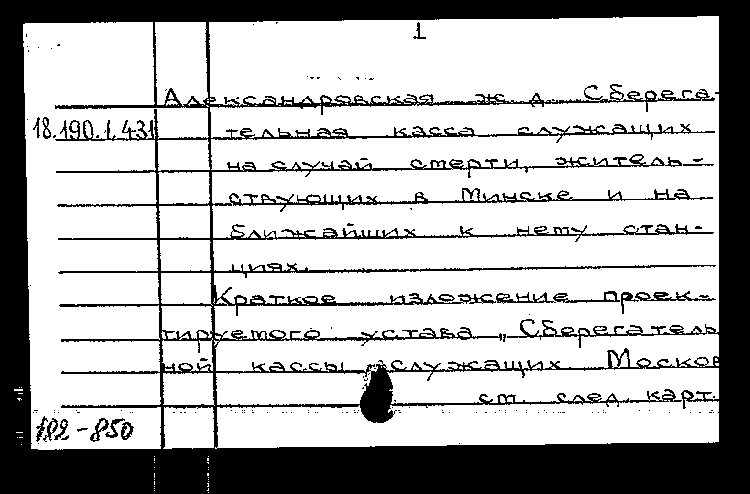 1
Александровская ж. д. Сберега-
18.190.1.431 тельная касса служащих
на случай смерти, житель-
ствующих в Минске и на
ближайших к нему стан-
циях.
Краткое изложение проек-
тируемого устава „Сберегатель
ной кассы служащих Москов
ст. след. карт.
182-850